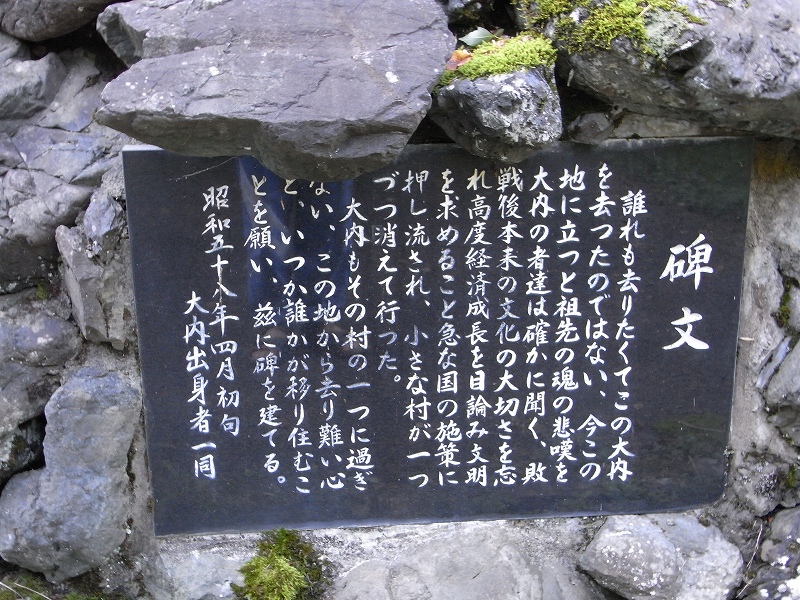 碑文
誰れも去りたくてこの大内
を去つたのではない、今この
地に立つと祖先の魂の悲嘆を
大内の者達は確かに聞く、敗
戦後本来の文化の大切さを忘
れ高度経済成長を目論み文明
を求めること急な国の施策に
押し流され、小さな村が一つ
づつ消えて行った。
大内もその村の一つに過ぎ
ない、この地から去り難い心
と、いつか誰かが移り住むこ
とを願い、茲に碑を建てる。
昭和五十八年四月初旬
大内出身者一同